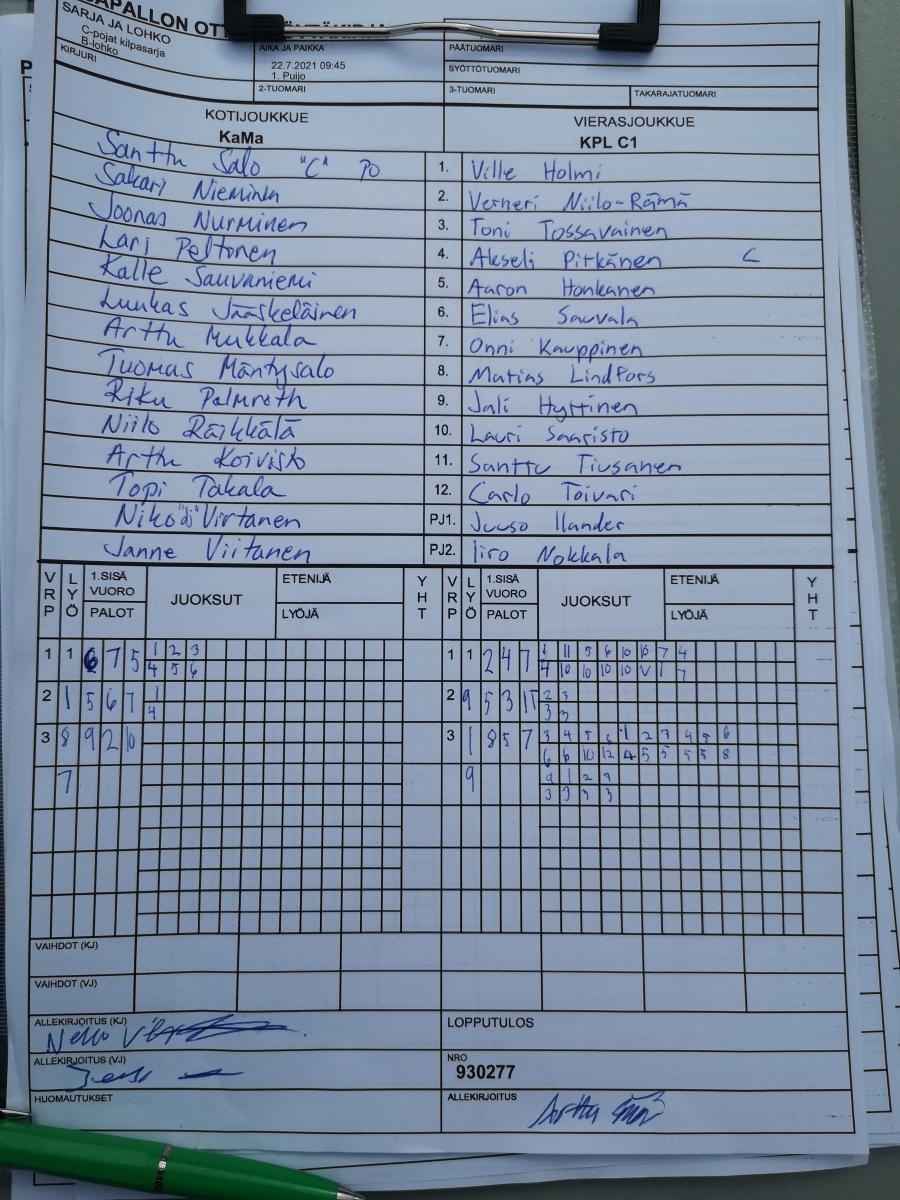 SARJA JA LOHKO
C-pojat kilpasarja
B-lohko
AIKA JA PAIKKA
22.7.2021 09:45
1. Puijo
PÄÄTUOMARI
SYÖTTÖTUOMARI
KIRJURI
2-TUOMARI
3-TUOMARI
TAKARAJATUOMARI
KOTIJOUKKUE VIERASJOUKKUE
KaMa KPL C1
Santtu Salo "C" PO 1. Ville Holmi
Sakari Nieminen 2. Verneri Niilo-Rämä
Joonas Nurminen 3. Toni Tossavainen
Lari Peltonen 4. Akseli Pitkänen C
Kalle Sauvaniemi 5. Aaron Honkanen
Luukas Jääskeläinen 6. Elias Sauvala
Arttu Mukkala 7. Onni Kauppinen
Tuomas Mäntysalo 8. Matias Lindfors
Riku Palmroth 9. Jali Hyttinen
Niilo Räikkälä 10. Lauri Saaristo
Arttu Koivisto 11. Santtu Tiusanen
Topi Takala 12. Carlo Toivari
Niko Virtanen PJ1. Juuso Ilander
Janne Viitanen PJ2. Iiro Nokkala
VRP LYÖ 1.SISÄ VUORO PALOT JUOKSUT ETENIJÄ LYÖJÄ YHT VRP LYÖ 1.SISÄ VUORO PALOT JUOKSUT ETENIJÄ LYÖJÄ YHT
1 1 6 7 5 1 2 3 1 1 2 4 7
4 5 6
2 1 5 6 7 1 2 9 5 3 2 3
4 3 3
3 8 9 2 10 3 1 8 5 7 3 4 5 6 1 2 3 4 5 6
6 6 10 12 4 5 5 5 5 8
7 9 9 1 2 9
3 3 3 3
VAIHDOT (KJ)
VAIHDOT (VJ)
ALLEKIRJOITUS (KJ) LOPPUTULOS
ALLEKIRJOITUS (VJ) NRO
930277
HUOMAUTUKSET ALLEKIRJOITUS
Arttu